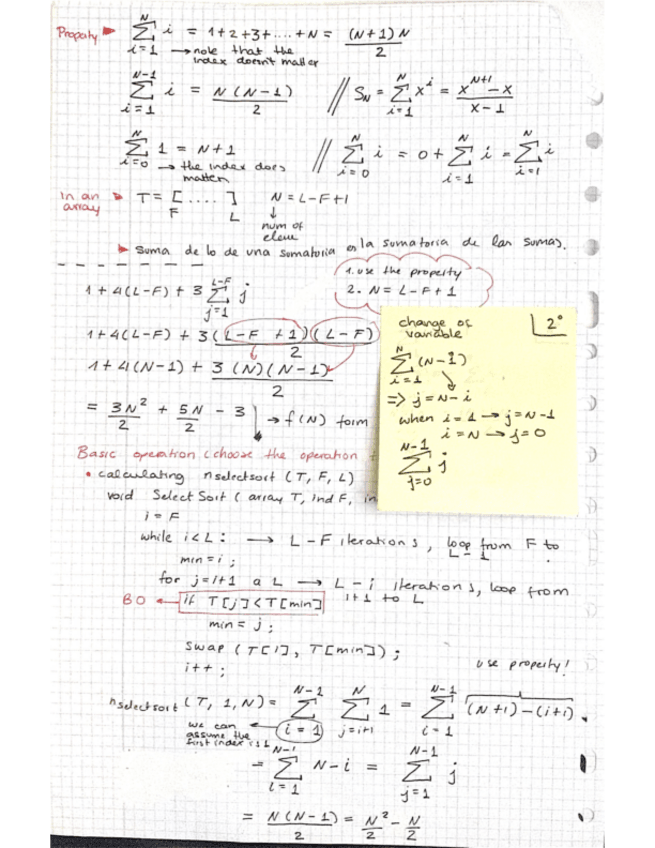 Property ► \sum_{i=1}^{N} i = 1+2+3+....+N = \frac{(N+1)N}{2}
→ note that the
index doesn't matter
\sum_{i=1}^{N-1} i = \frac{N(N-1)}{2} // S_N = \sum_{i=1}^{N} x^i = \frac{x^{N+1} - x}{x-1}
\sum_{i=0}^{N} 1 = N+1 // \sum_{i=0}^{N} i = 0 + \sum_{i=1}^{N} i = \sum_{i=1}^{N} i
→ the index does
matter
In an array ► T = [ .... ] N = L-F+1
F L ↓
num of
elem
► Suma de lo de una sumatoria es la sumatoria de las sumas.
1. use the property
2. N = L-F+1
1+4(L-F) + 3 \sum_{j=1}^{L-F} j
1+4(L-F) + \frac{3(L-F+1)(L-F)}{2}
1+4(N-1) + \frac{3(N)(N-1)}{2}
= \frac{3N^2}{2} + \frac{5N}{2} - 3 → f(N) form
change of 2°
variable
\sum_{i=1}^{N} (N-i)
=> j = N-i
when i=1 → j=N-1
i=N → j=0
\sum_{j=0}^{N-1} j
Basic operation (choose the operation
• calculating nselectsort (T, F, L)
void SelectSort (array T, ind F, in
i = F
while i<L: → L-F iterations, loop from F to
L-1
min=i;
for j=i+1 a L → L-i iterations, loop from
i+1 to L
BO ← if T[j]<T[min]
min = j;
swap (T[i], T[min]);
i++;
use property!
nselectsort (T, 1, N) = \sum_{i=1}^{N-1} \sum_{j=i+1}^{N} 1 = \sum_{i=1}^{N-1} (N+1)-(i+1)
we can
assume the
first index is 1
= \sum_{i=1}^{N-1} N-i = \sum_{j=1}^{N-1} j
= \frac{N(N-1)}{2} = \frac{N^2}{2} - \frac{N}{2}